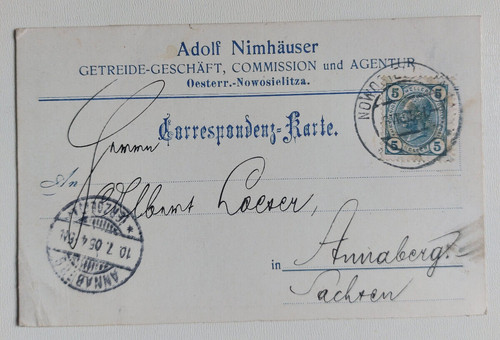 Adolf Nimhäuser
GETREIDE-GESCHÄFT, COMMISSION und AGENTUR
Oesterr.-Nowosielitza.
5 5
5 5
Correspondenz-Karte.
Herrn
An Albert
in Annaberg.
Sachsen
10.7.05
ANNABERG